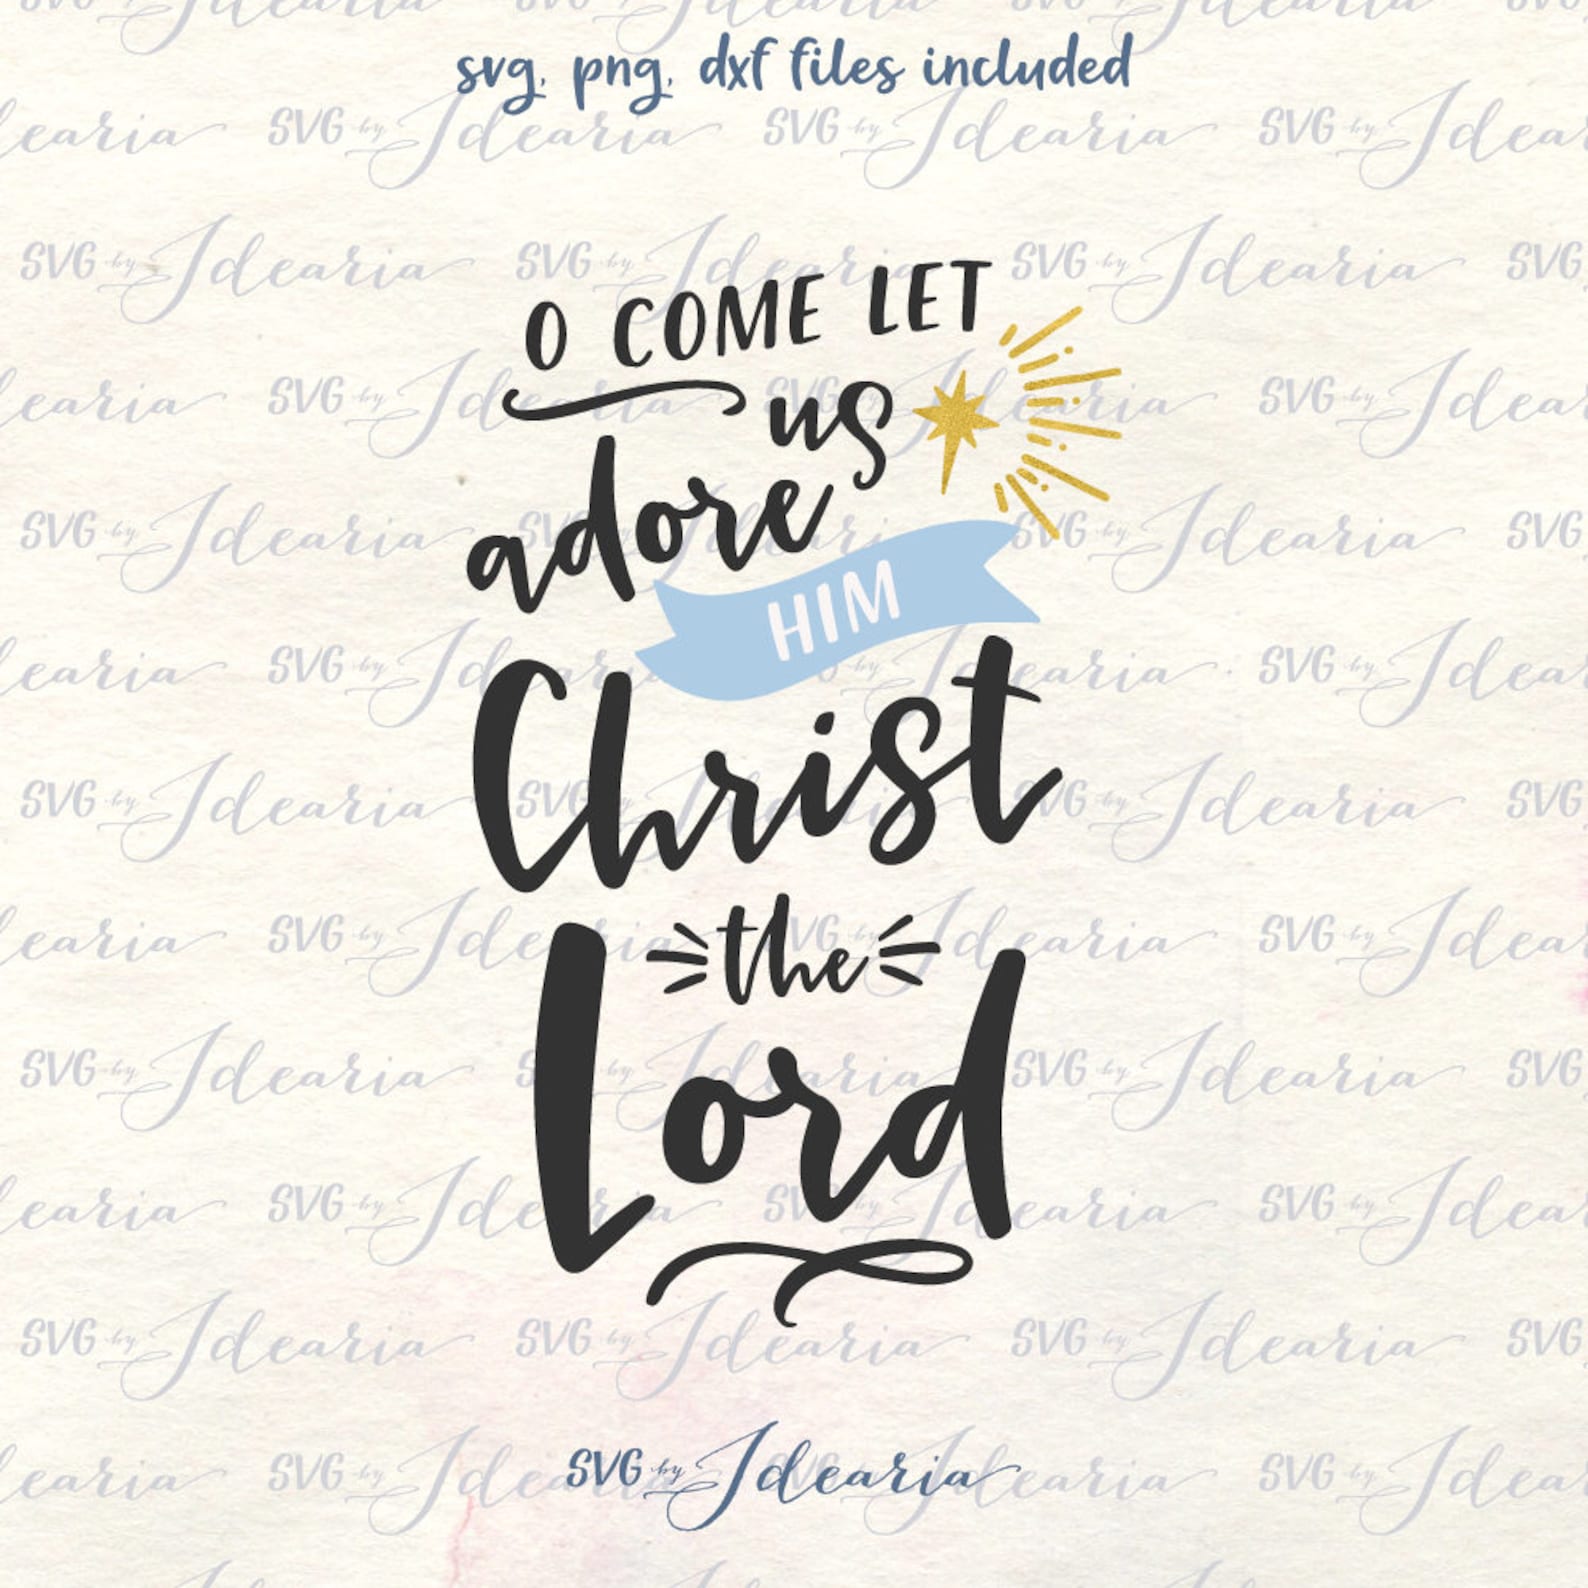 svg, png, dxf files included
O COME LET
us
adore
HIM
Christ
the
Lord
SVG by Idearia